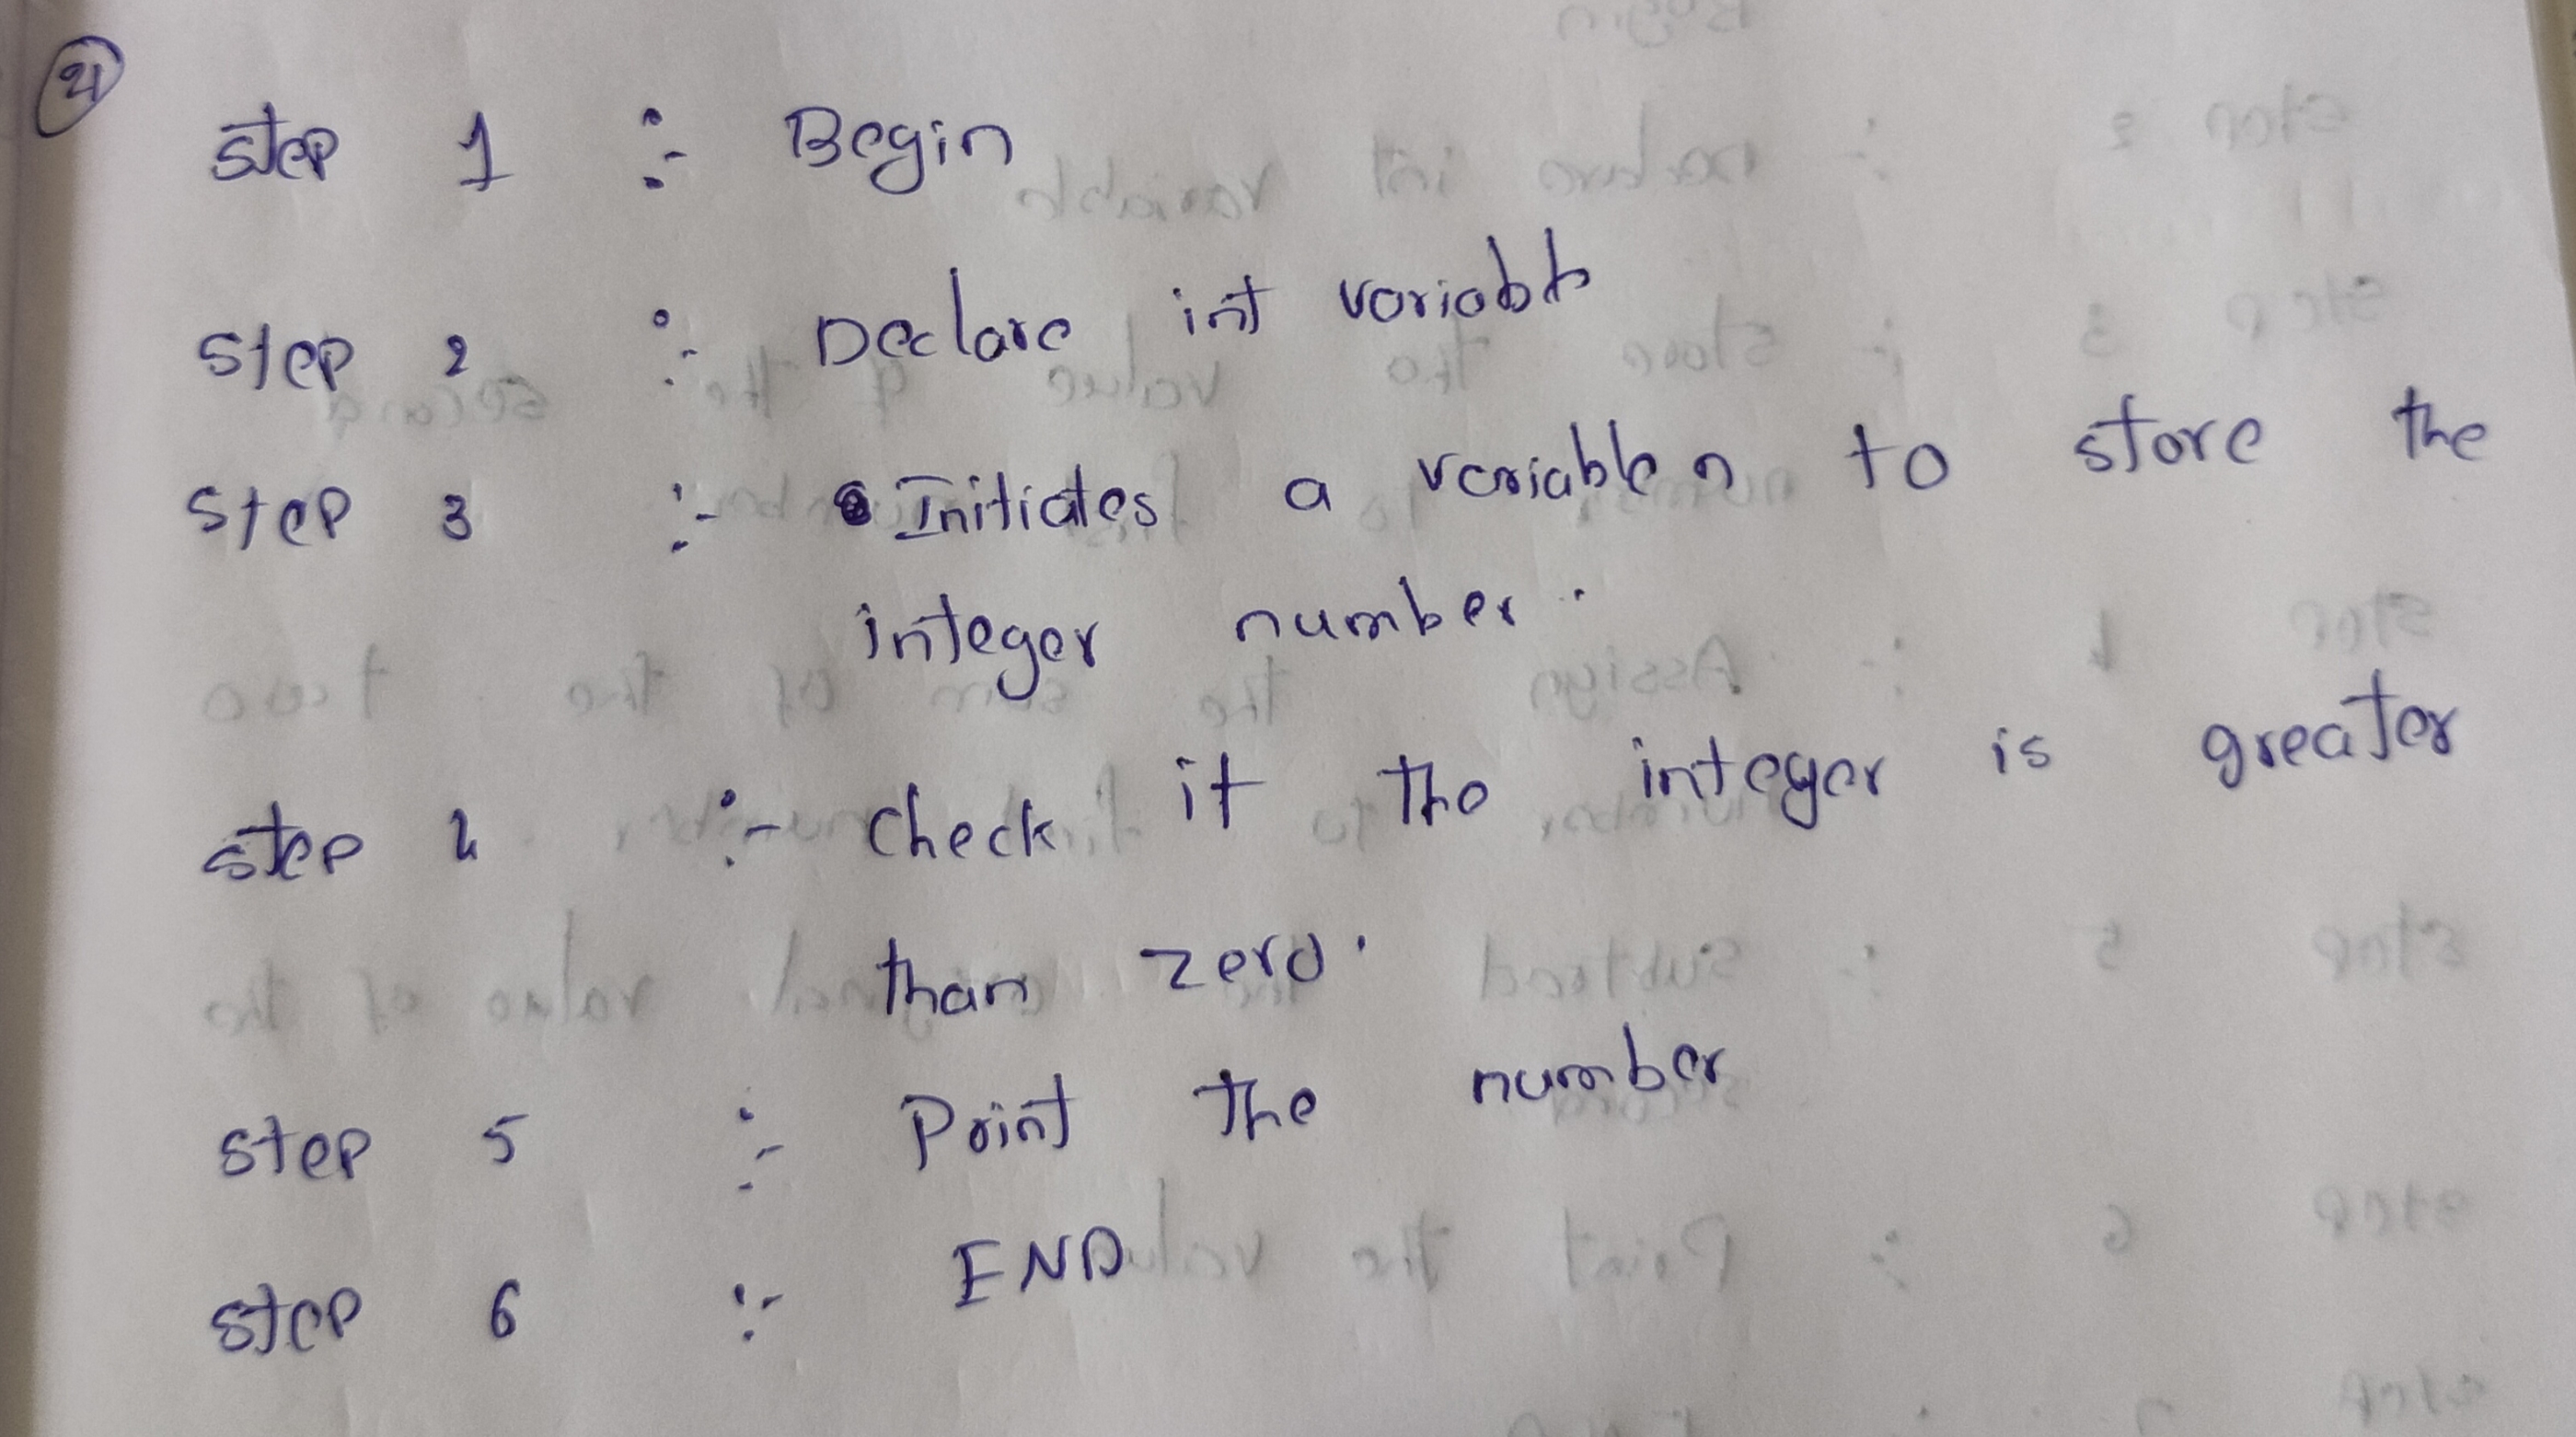 4
step 1 :- Begin
step 2 :- Declare int variable
step 3 :- Initiates a variable n to store the
integer number.
step 4 :- check if the integer is greater
than zero.
step 5 :- Print the number
step 6 :- END